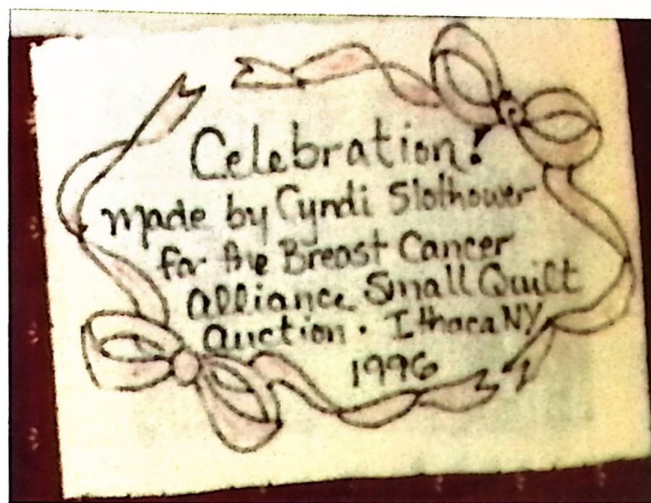 Celebration!
Made by Cyndi Slothower
for the Breast Cancer
Alliance Small Quilt
Auction. Ithaca NY
1996